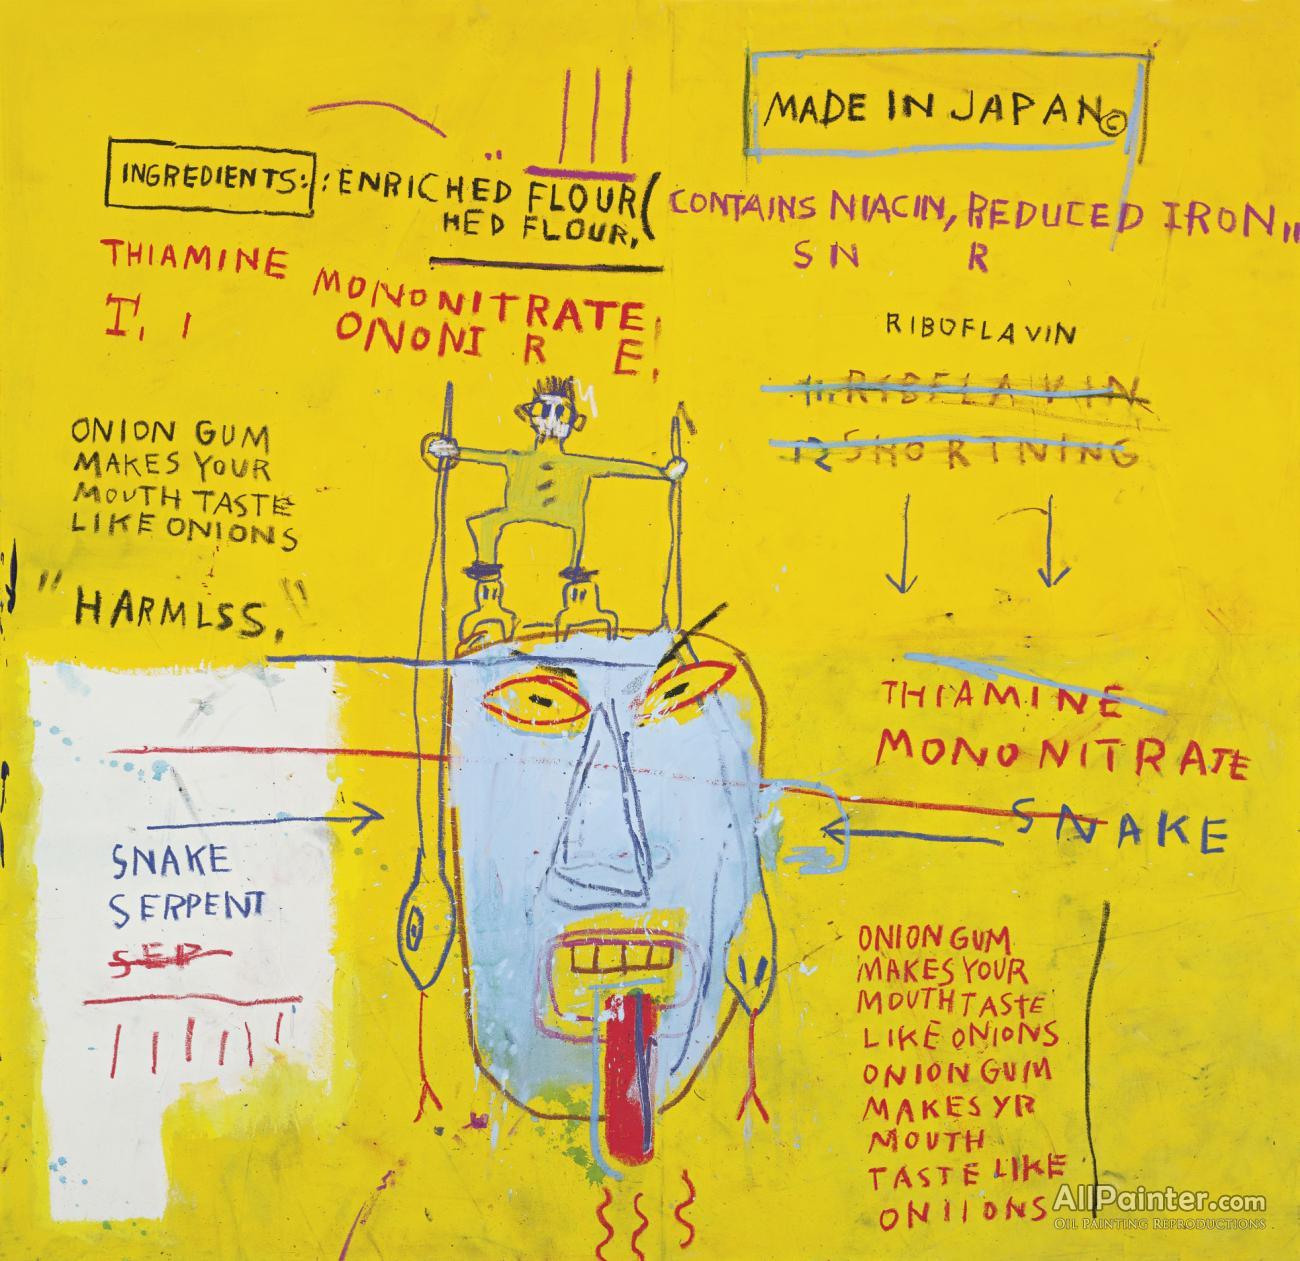 MADE IN JAPAN©
INGREDIENTS: : ENRICHED FLOUR (
HED FLOUR,
CONTAINS NIACIN, REDUCED IRON,,
S N R
THIAMINE MONONITRATE,
T, I ONONI R E,
RIBOFLAVIN
11. RIBFLAVIN
12 SHORTNING
ONION GUM
MAKES YOUR
MOUTH TASTE
LIKE ONIONS
"HARMLSS,"
THIAMINE
MONONITRATE
SNAKE
SNAKE
SERPENT
SEP
ONION GUM
MAKES YOUR
MOUTH TASTE
LIKE ONIONS
ONION GUM
MAKES YR
MOUTH
TASTE LIKE
ONIIONS
AllPainter.com
OIL PAINTING REPRODUCTIONS